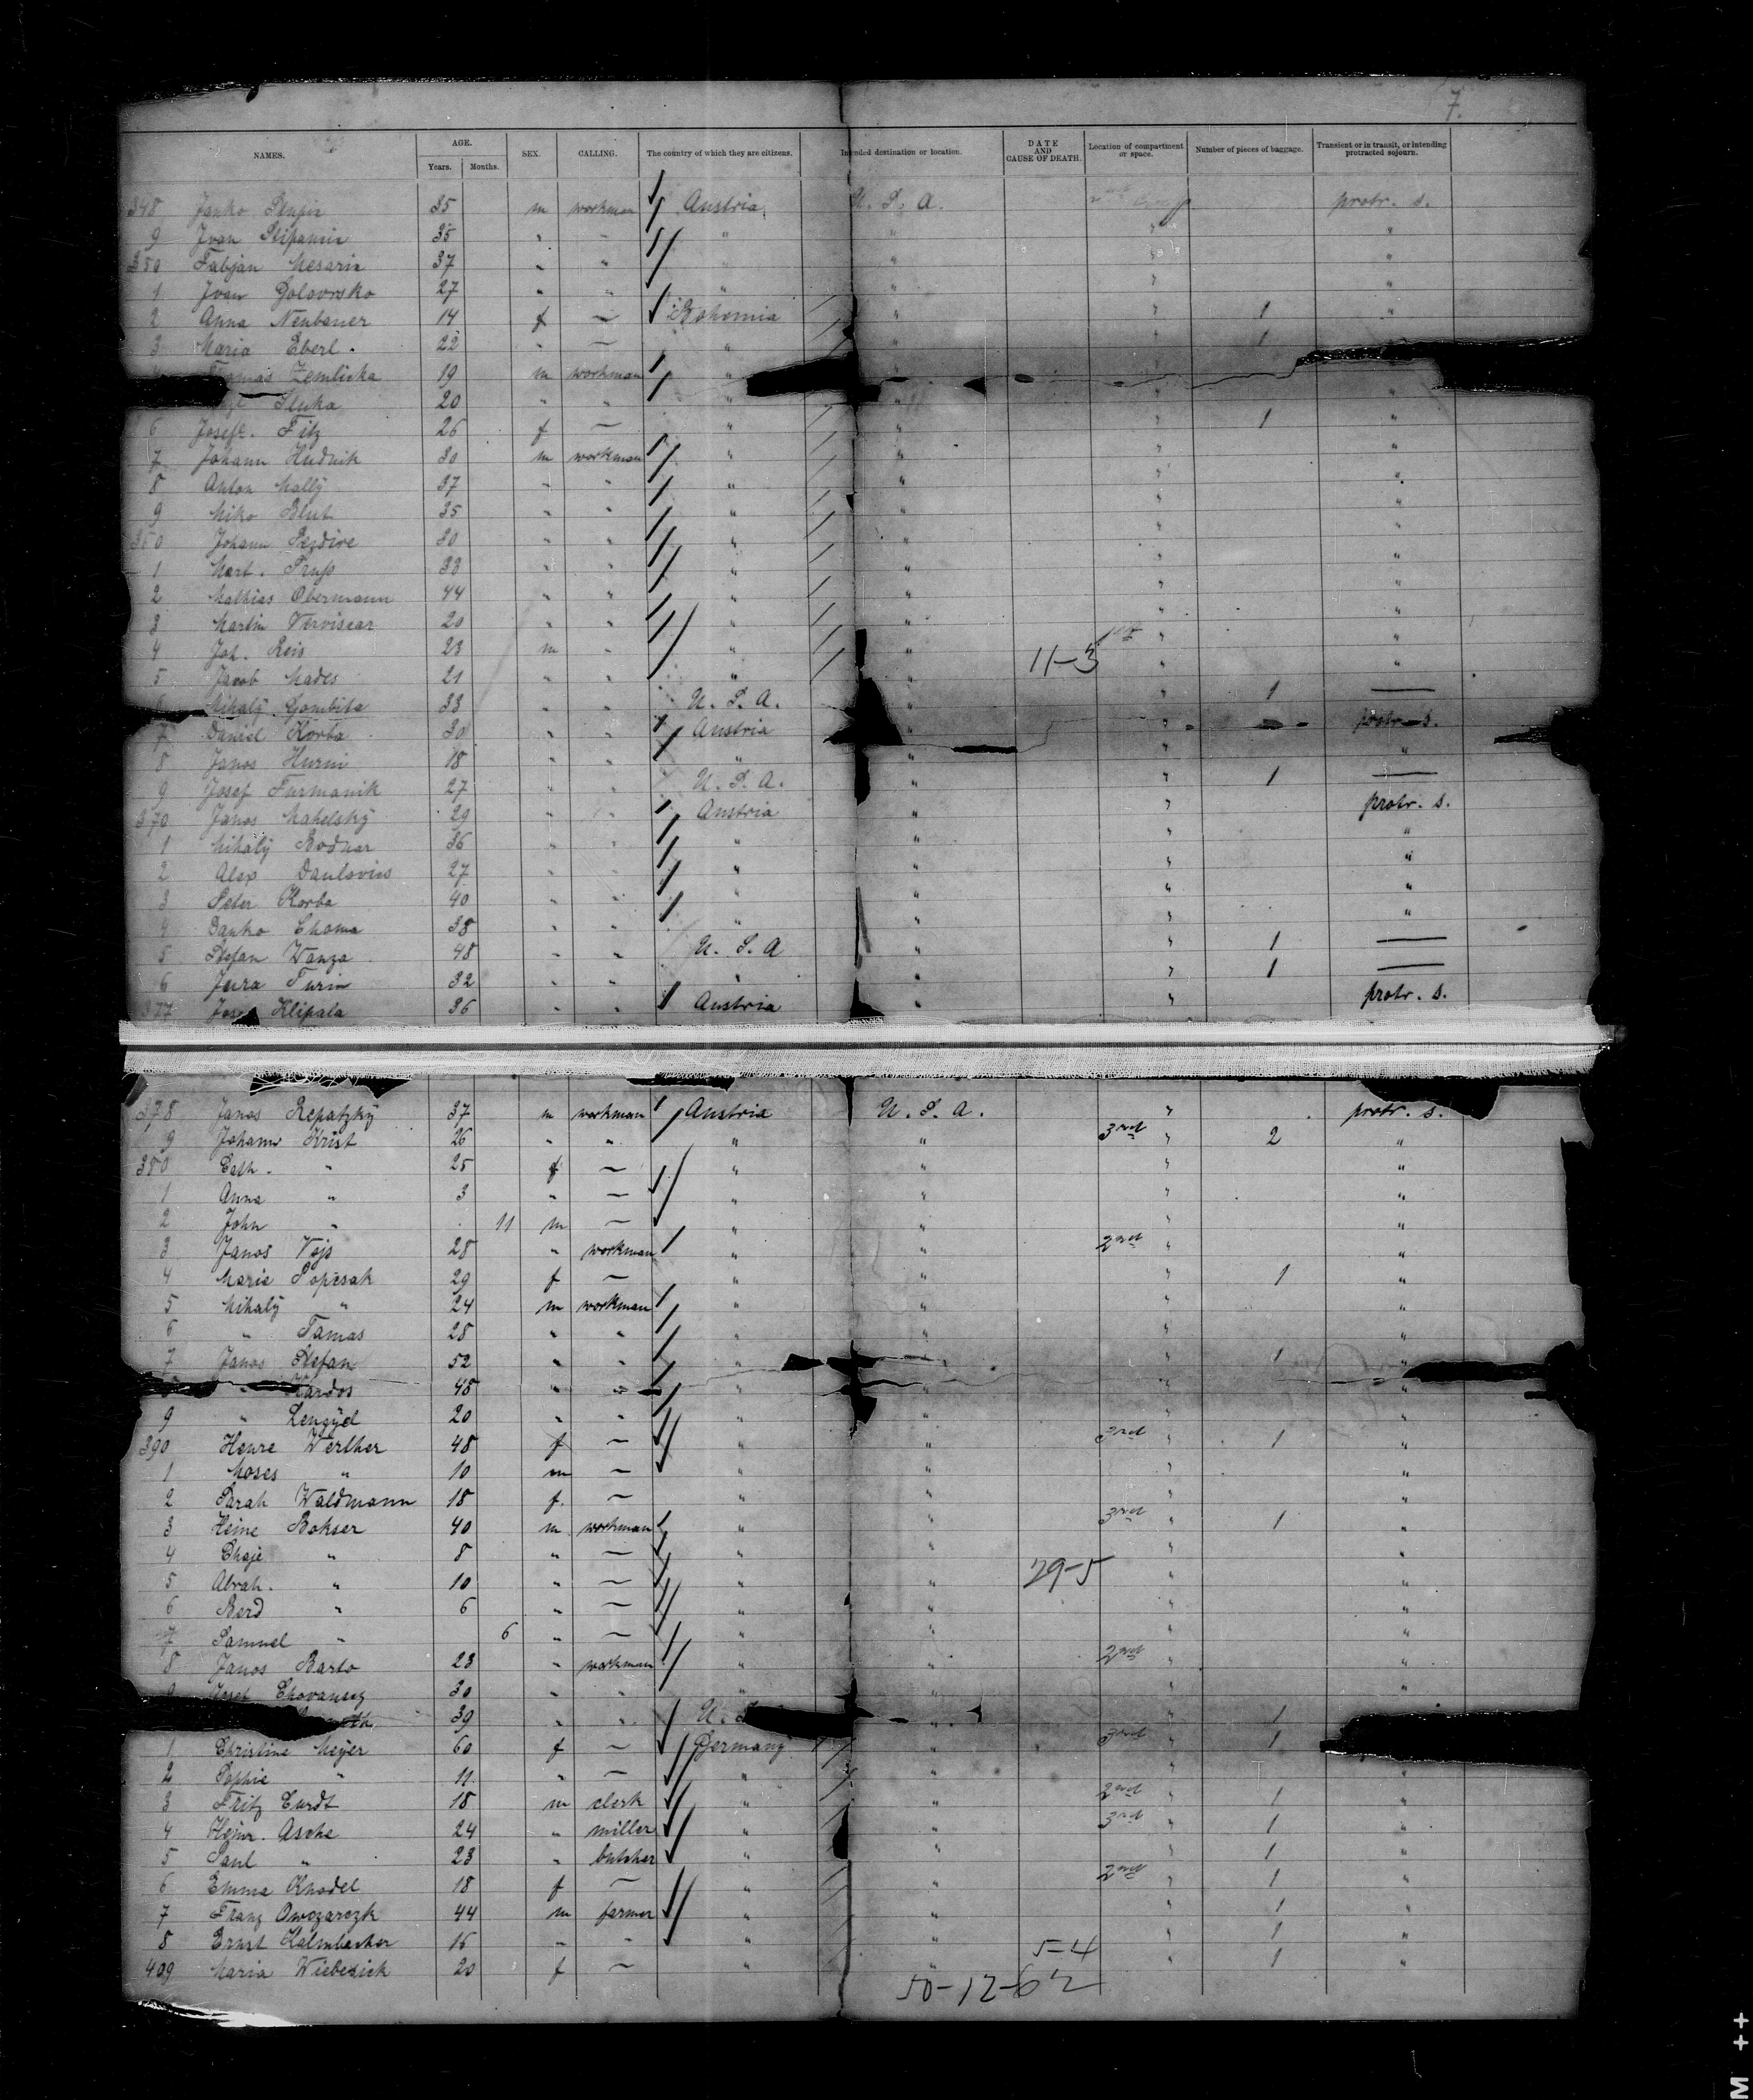 7.
NAMES. AGE. Years. Months. SEX. CALLING. The country of which they are citizens. Intended destination or location. DATE AND CAUSE OF DEATH. Location of compartment or space. Number of pieces of baggage. Transient or in transit, or intending protracted sojourn.
348 Janko 35 m workman Austria U. S. A. protr. s.
9 Ivan Stipancic 35 " " " " " "
350 Fabjan Mesaric 37 " " " " " "
1 Ivan 27 " " " " " "
2 Anna Neubauer 14 f — Bohemia " " 1 "
3 Maria Eberl. 22 " — " " " 1
Zemlicka 19 m workman " "
Sluka 20 " " " " " "
6 Josefa. Fitz 26 f — " " " 1 "
7 Johann Hudnik 30 m workman " " " "
8 Anton Mally 37 " " " " " "
9 Miko Blut 35 " " " " " "
360 Johann 30 " " " " " "
1 Mart. 33 " " " " " "
2 Mathias Obermann 44 " " " " " "
3 Martin Verviscar 20 " " " " " "
4 Joh. Reis 23 m " " " "  "
5 Jacob Mades 21 " " " " 11-3 " "
Mihaly Gombita 33 " " U. S. A. " " 1 —
7 Daniel Korba 30 " " Austria " " protr. s.
8 Janos 18 " " " " " "
9 Josef Furmanik 27 " " U. S. A. " " 1 —
370 Janos Mahelsky 29 " " Austria " " protr. s.
1 Mihaly Bodnar 36 " " " " " "
2 Alex Danlovics 27 " " " " " "
3 Peter Korba 40 " " " " " "
4 Danko Choma 38 " " " " " "
5 Stefan Wanza 48 " " U. S. A " " 1 —
6 Jura Turin 32 " " " " " 1 —
377 Josef Klipala 36 " " Austria " " protr. s.
378 Janos Repatzky 37 m workman Austria U. S. A. " protr. s.
9 Johann Krist 26 " " " " 3rd " 2 "
380 Cath. " 25 f — " " " "
1 Anna " 3 " — " " " "
2 John " 11 m — " " " "
3 Janos Vojs 28 " workman " " 2nd " "
4 Marie Popcsak 29 f — " " 1 "
5 Mihaly " 24 m workman " " " "
6 " Tamas 28 " " " " " "
7 Janos Stefan 52 " " " " " 1 "
" Kardos 48 " " " " "
9 " Lengyel 20 " " " " "
390 Henre Werther 48 f — " " 3rd " 1 "
1 Moses " 10 m — " " " "
2 Sarah Waldmann 18 f. — " " " "
3 Heine Bokser 40 m workman " " 3rd " 1 "
4 Chaje " 8 " — " " " "
5 Abrah. " 10 " — " " 29-5 " "
6 Berd " 6 " — " " " "
7 Samuel " 6 " — " " " "
8 Janos Barto 23 " workman " " 2nd " "
Josef Chovansey 30 " " " " " "
39 " " U. S. " " 1
1 Christine Meyer 60 f — Germany " 3rd " 1
2 Sophie " 11 " — " " " "
3 Fritz Curdt 18 m clerk " " 2nd " 1 "
4 Heinr. Asche 24 " miller " " 3rd " 1 "
5 Paul " 23 " butcher " " " 1 "
6 Emma Knodel 18 f — " " 2nd " 1 "
7 Franz Owczarczk 44 m farmer " " " 1 "
8 Ernst Kalmbacher 16 " " " " " 1 "
409 Maria Wiebesick 20 f — " " 5-4 " 1 "
50-12-62
M ++